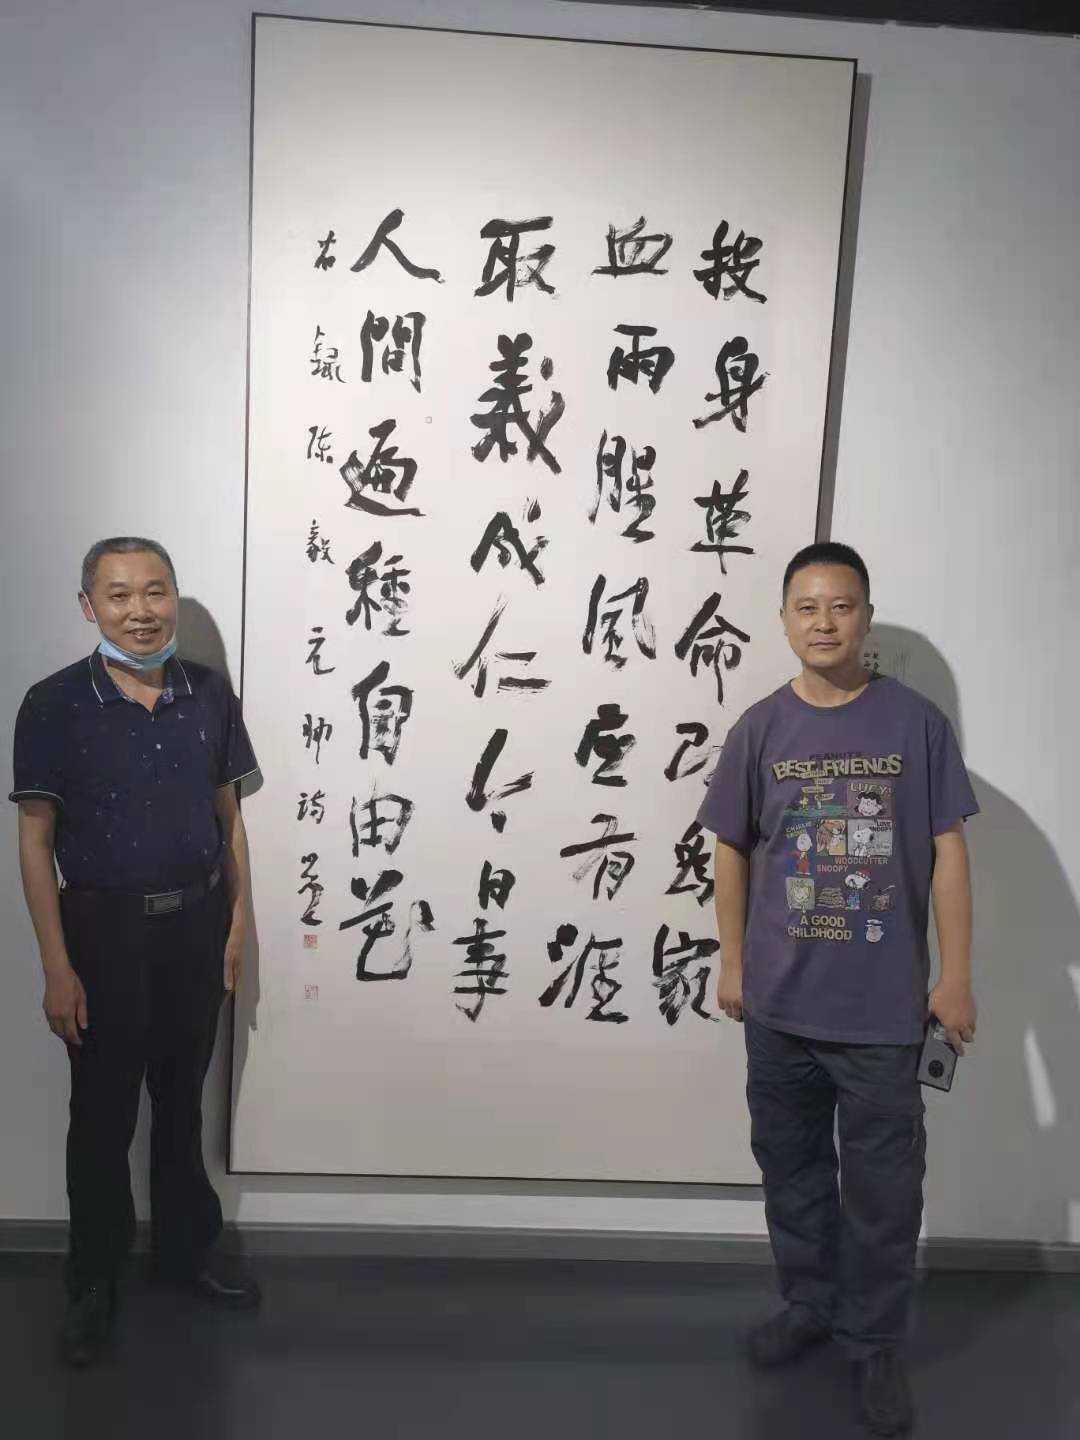 投身革命即為家
血雨腥風应有涯
取義成仁今日事
人間遍種自由花
右録陈毅元帅诗
PEANUTS
BEST FRIENDS
LUCY
CHARLIE BROWN
LOVE SNOOPY
WOODCUTTER
SNOOPY
A GOOD
CHILDHOOD